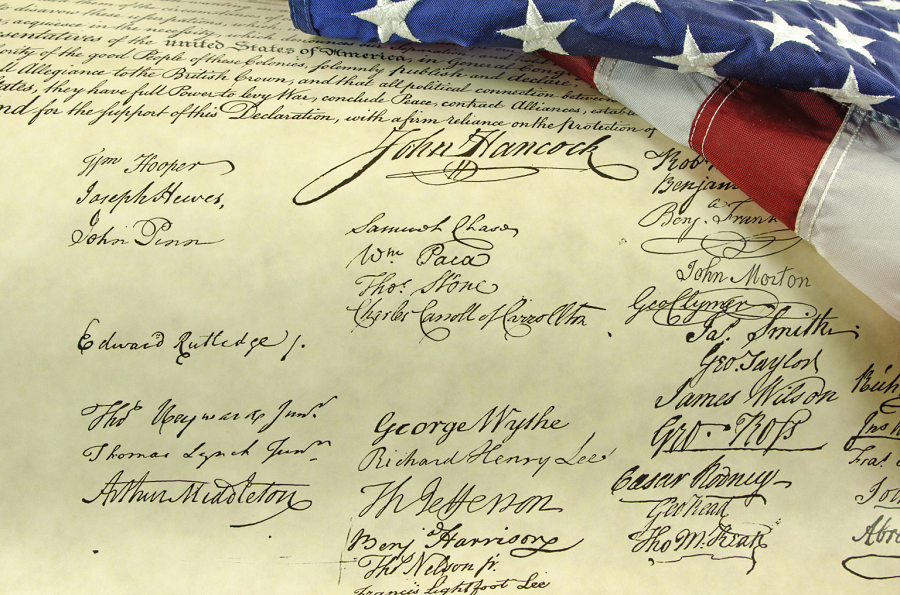 dissolve
acquiesce in the necessity, which
sentatives of the united States of America, in General Congress,
ority of the good People of these Colonies, solemnly publish and declare,
ll Allegiance to the British Crown, and that all political connection between
tates, they have full Power to levy War, conclude Peace, contract Alliances, establ
nd for the support of this Declaration, with a firm reliance on the protection of
John Hancock
Wm Hooper
Joseph Hewes,
John Penn
Edward Rutledge /.
Thos Heyward Junr.
Thomas Lynch Junr.
Arthur Middleton
Samuel Chase
Wm Paca
Thos. Stone
Charles Carroll of Carrollton
George Wythe
Richard Henry Lee
Th Jefferson
Benj Harrison
Thos Nelson jr.
Francis Lightfoot Lee
Rob
Benjam
Benj. Frank
John Morton
Geo Clymer
Jas. Smith.
Geo. Taylor
James Wilson
Geo. Ross
Caesar Rodney
Geo Read
Tho M. Kean
Rich
Jns
Fras.
Abra